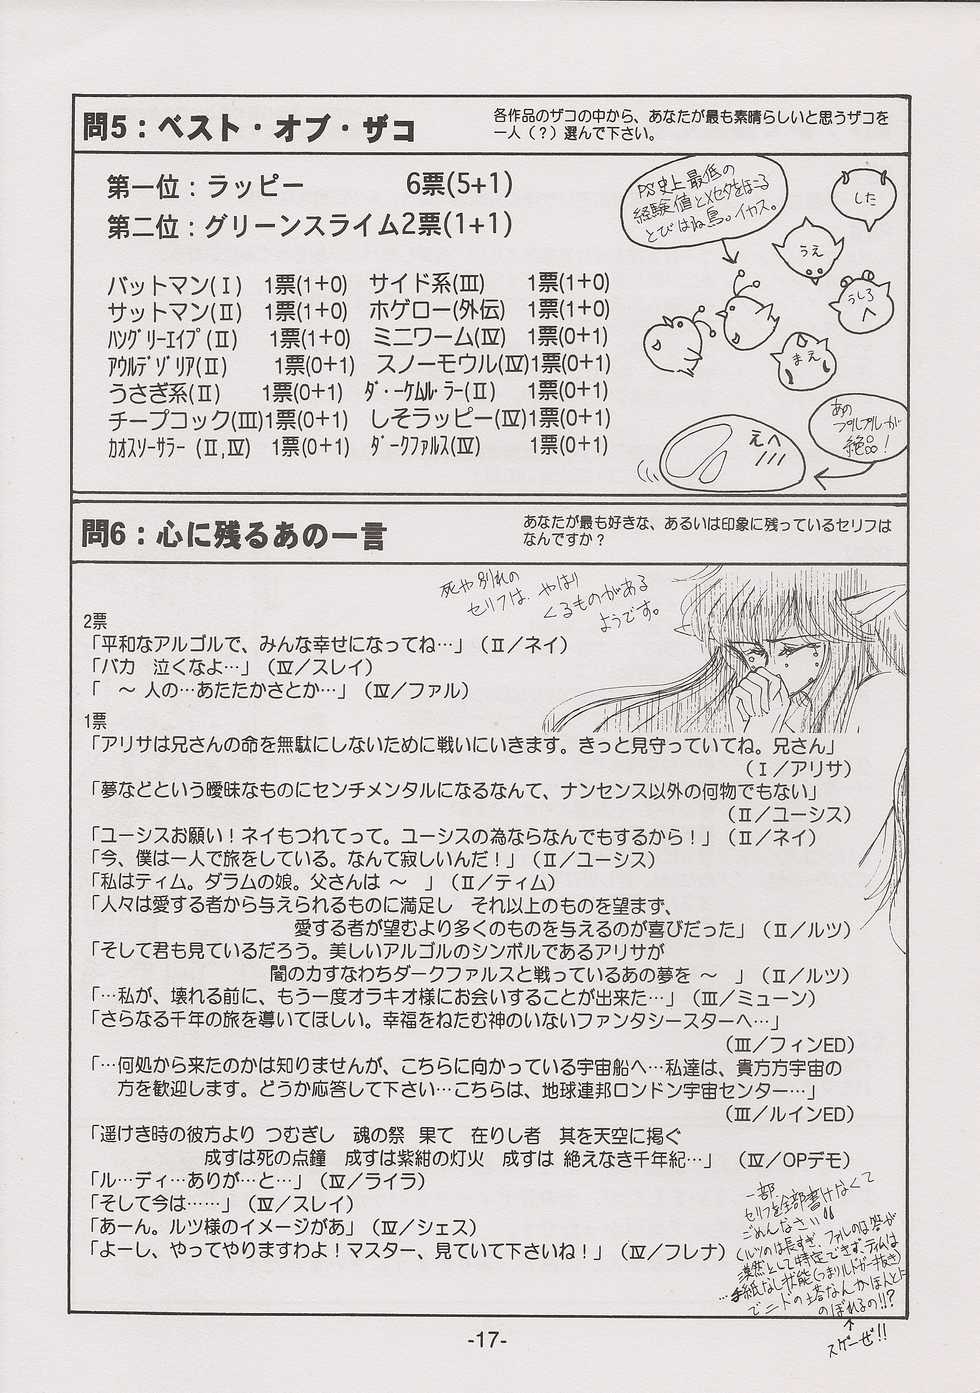 問5：ベスト・オブ・ザコ
各作品のザコの中から、あなたが最も素晴らしいと思うザコを
一人（？）選んで下さい。
第一位：ラッピー 6票(5+1)
第二位：グリーンスライム2票(1+1)
バットマン(Ⅰ) 1票(1+0) サイド系(Ⅲ) 1票(1+0)
サットマン(Ⅱ) 1票(1+0) ホゲロー(外伝) 1票(1+0)
ﾊﾝｸﾞﾘｰｴｲﾌﾟ(Ⅱ) 1票(1+0) ミニワーム(Ⅳ) 1票(1+0)
ｱｳﾙﾃﾞｿﾞﾘｱ(Ⅱ) 1票(0+1) スノーモウル(Ⅳ)1票(0+1)
うさぎ系(Ⅱ) 1票(0+1) ﾀﾞ･ｰｹﾑﾙ･ﾗｰ(Ⅱ) 1票(0+1)
チープコック(Ⅲ)1票(0+1) しそラッピー(Ⅳ)1票(0+1)
ｶｵｽｿｰｻﾗｰ (Ⅱ,Ⅳ) 1票(0+1) ﾀﾞｰｸﾌｧﾙｽ(Ⅳ) 1票(0+1)
PS史上最低の
経験値とメセタをほこる
とびはね鳥。イカス。
した
うえ
うしろ
へ
まえ
あの
プルプルが
絶品！
えへ
問6：心に残るあの一言
あなたが最も好きな、あるいは印象に残っているセリフは
なんですか？
死や別れの
セリフは、やはり
くるものがある
ようです。
2票
「平和なアルゴルで、みんな幸せになってね…」（Ⅱ／ネイ）
「バカ　泣くなよ…」（Ⅳ／スレイ）
「　～ 人の…あたたかさとか…」（Ⅳ／ファル）
1票
「アリサは兄さんの命を無駄にしないために戦いにいきます。きっと見守っていてね。兄さん」
（Ⅰ／アリサ）
「夢などという曖昧なものにセンチメンタルになるなんて、ナンセンス以外の何物でもない」
（Ⅱ／ユーシス）
「ユーシスお願い！ネイもつれてって。ユーシスの為ならなんでもするから！」（Ⅱ／ネイ）
「今、僕は一人で旅をしている。なんて寂しいんだ！」（Ⅱ／ユーシス）
「私はティム。ダラムの娘。父さんは ～　」（Ⅱ／ティム）
「人々は愛する者から与えられるものに満足し　それ以上のものを望まず、
愛する者が望むより多くのものを与えるのが喜びだった」（Ⅱ／ルツ）
「そして君も見ているだろう。美しいアルゴルのシンボルであるアリサが
闇の力すなわちダークファルスと戦っているあの夢を ～　」（Ⅱ／ルツ）
「…私が、壊れる前に、もう一度オラキオ様にお会いすることが出来た…」（Ⅲ／ミューン）
「さらなる千年の旅を導いてほしい。幸福をねたむ神のいないファンタシースターへ…」
（Ⅲ／フィンED）
「…何処から来たのかは知りませんが、こちらに向かっている宇宙船へ…私達は、貴方方宇宙の
方を歓迎します。どうか応答して下さい…こちらは、地球連邦ロンドン宇宙センター…」
（Ⅲ／ルインED）
「遥けき時の彼方より つむぎし　魂の祭　果て　在りし者　其を天空に掲ぐ
成すは死の点鐘　成すは紫紺の灯火　成すは 絶えなき千年紀…」（Ⅳ／OPデモ）
「ル…ディ…ありが…と…」（Ⅳ／ライラ）
「そして今は……」（Ⅳ／スレイ）
「あーん。ルツ様のイメージがあ」（Ⅳ／シェス）
「よーし、やってやりますわよ！マスター、見ていて下さいね！」（Ⅳ／フレナ）
一部、
セリフを全部書けなくて
ごめんなさい!!
（ルツのは長すぎ、ファルのは答が
漠然として特定できず、ティムは
…手紙なし状態（つまりルドガー抜き）
でニドの塔なんかほんとに
のぼれるの!!?
スゲーぜ!!
-17-